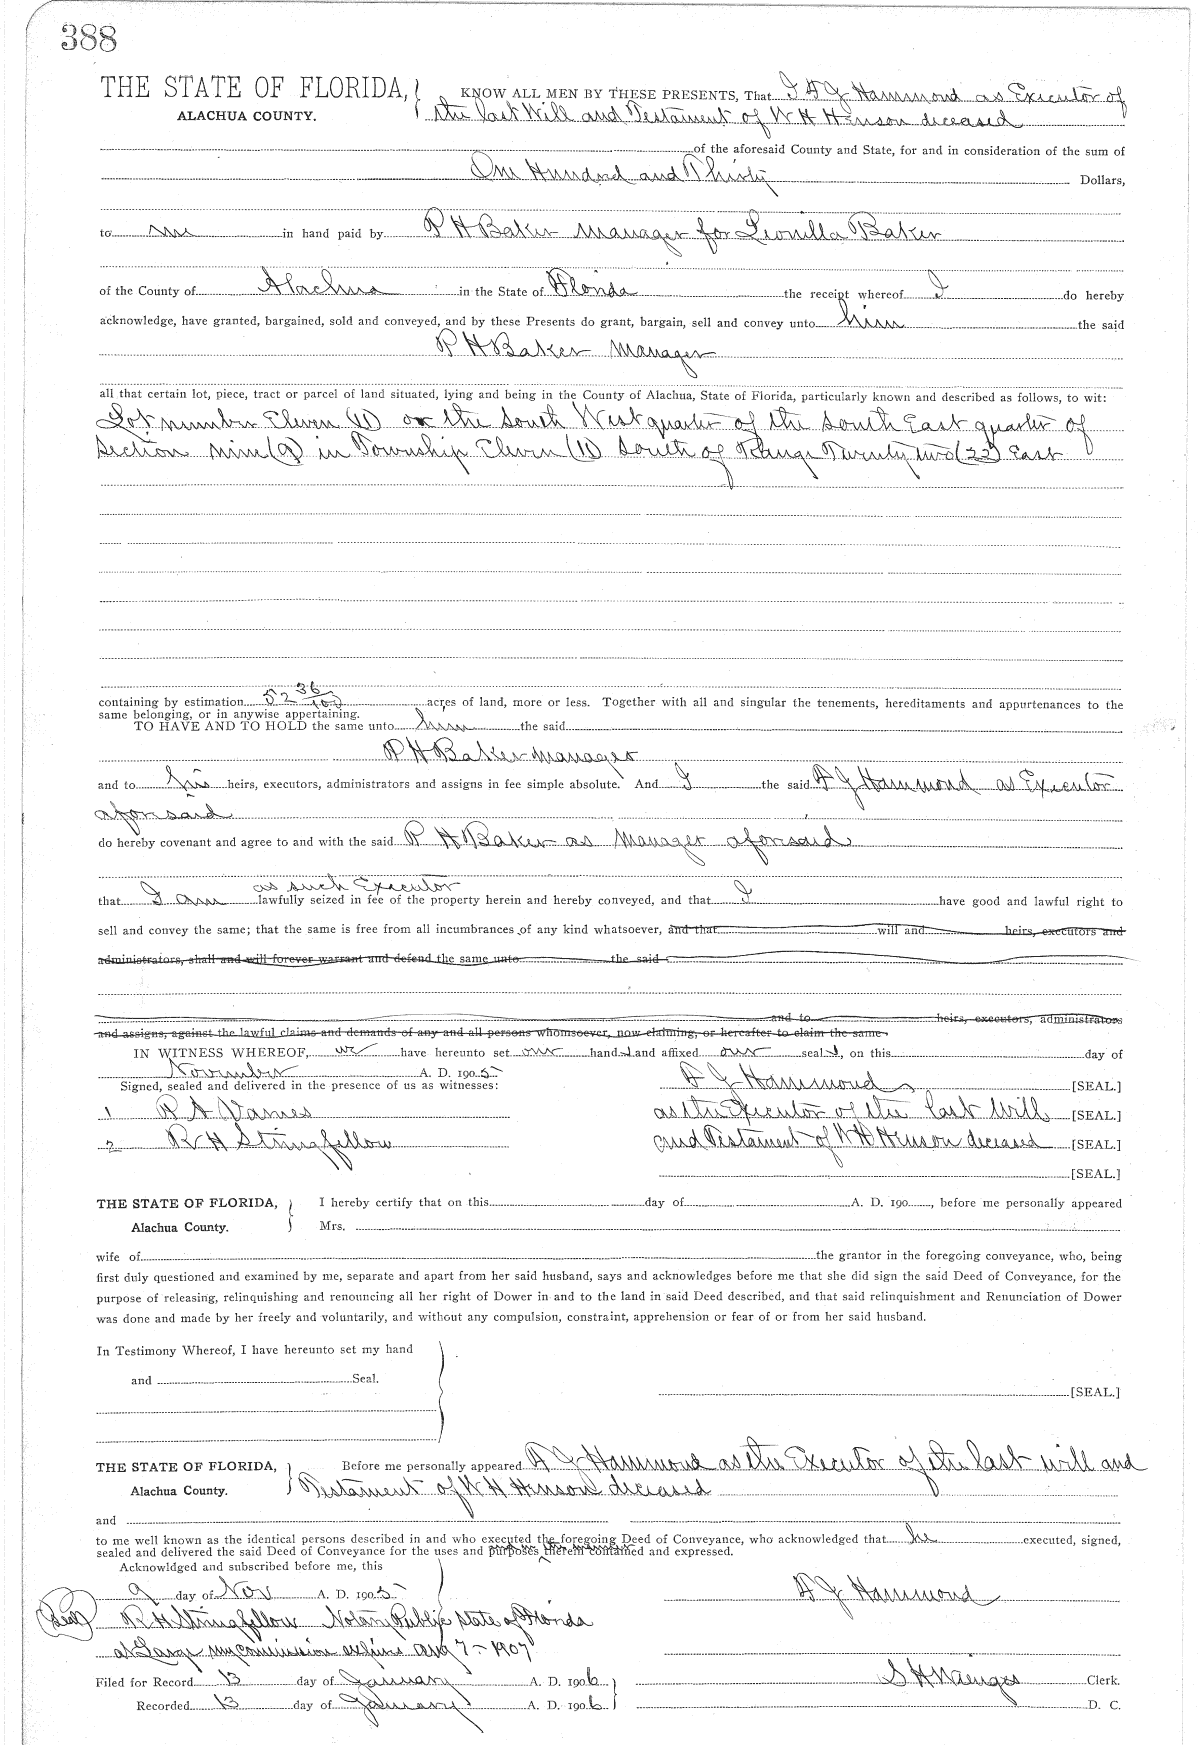 388
THE STATE OF FLORIDA, KNOW ALL MEN BY THESE PRESENTS, That I A J Hammond as Executor of
ALACHUA COUNTY. the last Will and Testament of W H Henson deceased
of the aforesaid County and State, for and in consideration of the sum of
One Hundred and Thirty Dollars,
to me in hand paid by P H Baker Manager for Leonilla Baker
of the County of Alachua in the State of Florida the receipt whereof I do hereby
acknowledge, have granted, bargained, sold and conveyed, and by these Presents do grant, bargain, sell and convey unto him the said
P H Baker Manager
all that certain lot, piece, tract or parcel of land situated, lying and being in the County of Alachua, State of Florida, particularly known and described as follows, to wit:
Lot number Eleven (11) or the South West quarter of the South East quarter of
Section nine (9) in Township Eleven (11) South of Range Twenty two (22) East
containing by estimation 52 36/100 acres of land, more or less. Together with all and singular the tenements, hereditaments and appurtenances to the
same belonging, or in anywise appertaining.
TO HAVE AND TO HOLD the same unto him the said
P H Baker Manager
and to his heirs, executors, administrators and assigns in fee simple absolute. And I the said A J Hammond as Executor
aforesaid
do hereby covenant and agree to and with the said P H Baker as Manager aforesaid
as such Executor
that I am lawfully seized in fee of the property herein and hereby conveyed, and that I have good and lawful right to
sell and convey the same; that the same is free from all incumbrances of any kind whatsoever, and that will and heirs, executors and
administrators, shall and will forever warrant and defend the same unto the said
and to heirs, executors, administrators
and assigns, against the lawful claims and demands of any and all persons whomsoever, now claiming, or hereafter to claim the same.
IN WITNESS WHEREOF, we have hereunto set our hands and affixed our seals, on this day of
November A. D. 1905 A J Hammond [SEAL.]
Signed, sealed and delivered in the presence of us as witnesses:
1 as the Executor of the last Will [SEAL.]
2 R H Stringfellow and Testament of W H Henson deceased [SEAL.]
[SEAL.]
THE STATE OF FLORIDA, I hereby certify that on this day of A. D. 190 , before me personally appeared
Alachua County. Mrs.
wife of the grantor in the foregoing conveyance, who, being
first duly questioned and examined by me, separate and apart from her said husband, says and acknowledges before me that she did sign the said Deed of Conveyance, for the
purpose of releasing, relinquishing and renouncing all her right of Dower in and to the land in said Deed described, and that said relinquishment and Renunciation of Dower
was done and made by her freely and voluntarily, and without any compulsion, constraint, apprehension or fear of or from her said husband.
In Testimony Whereof, I have hereunto set my hand
and Seal.
[SEAL.]
THE STATE OF FLORIDA, Before me personally appeared A J Hammond as the Executor of the last will and
Alachua County. Testament of W H Henson deceased
and
to me well known as the identical persons described in and who executed the foregoing Deed of Conveyance, who acknowledged that he executed, signed,
sealed and delivered the said Deed of Conveyance for the uses and purposes therein contained and expressed.
Acknowldged and subscribed before me, this
9 day of Nov A. D. 1905 A J Hammond
(Seal) R H Stringfellow Notary Public State of Florida
at Large my commission expires Aug 7 - 1907
Filed for Record 13 day of January A. D. 1906 S H Wienges Clerk.
Recorded 13 day of January A. D. 1906 D. C.